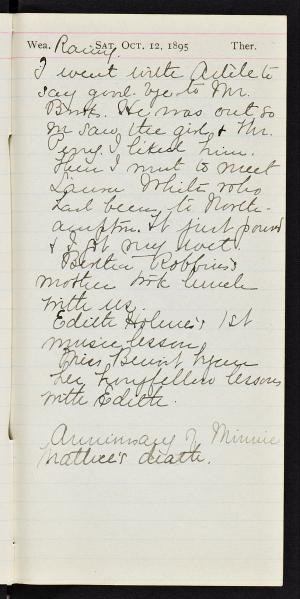 Wea. Rainy. Sat. Oct. 12, 1895 Ther.
I went with Adile to
say good-bye to Mr.
He was out so
we saw the girl & Mr.
Perry. I liked him.
Then I went to meet
Laura White who
had been to North-
ampton. It just poured
& I got my
Bertha Robbins's
mother took lunch
with us.
Edith Holmes's 1st
music lesson.
Miss began
her Longfellow lessons
with Edith.
Anniversary of Minnie
death.